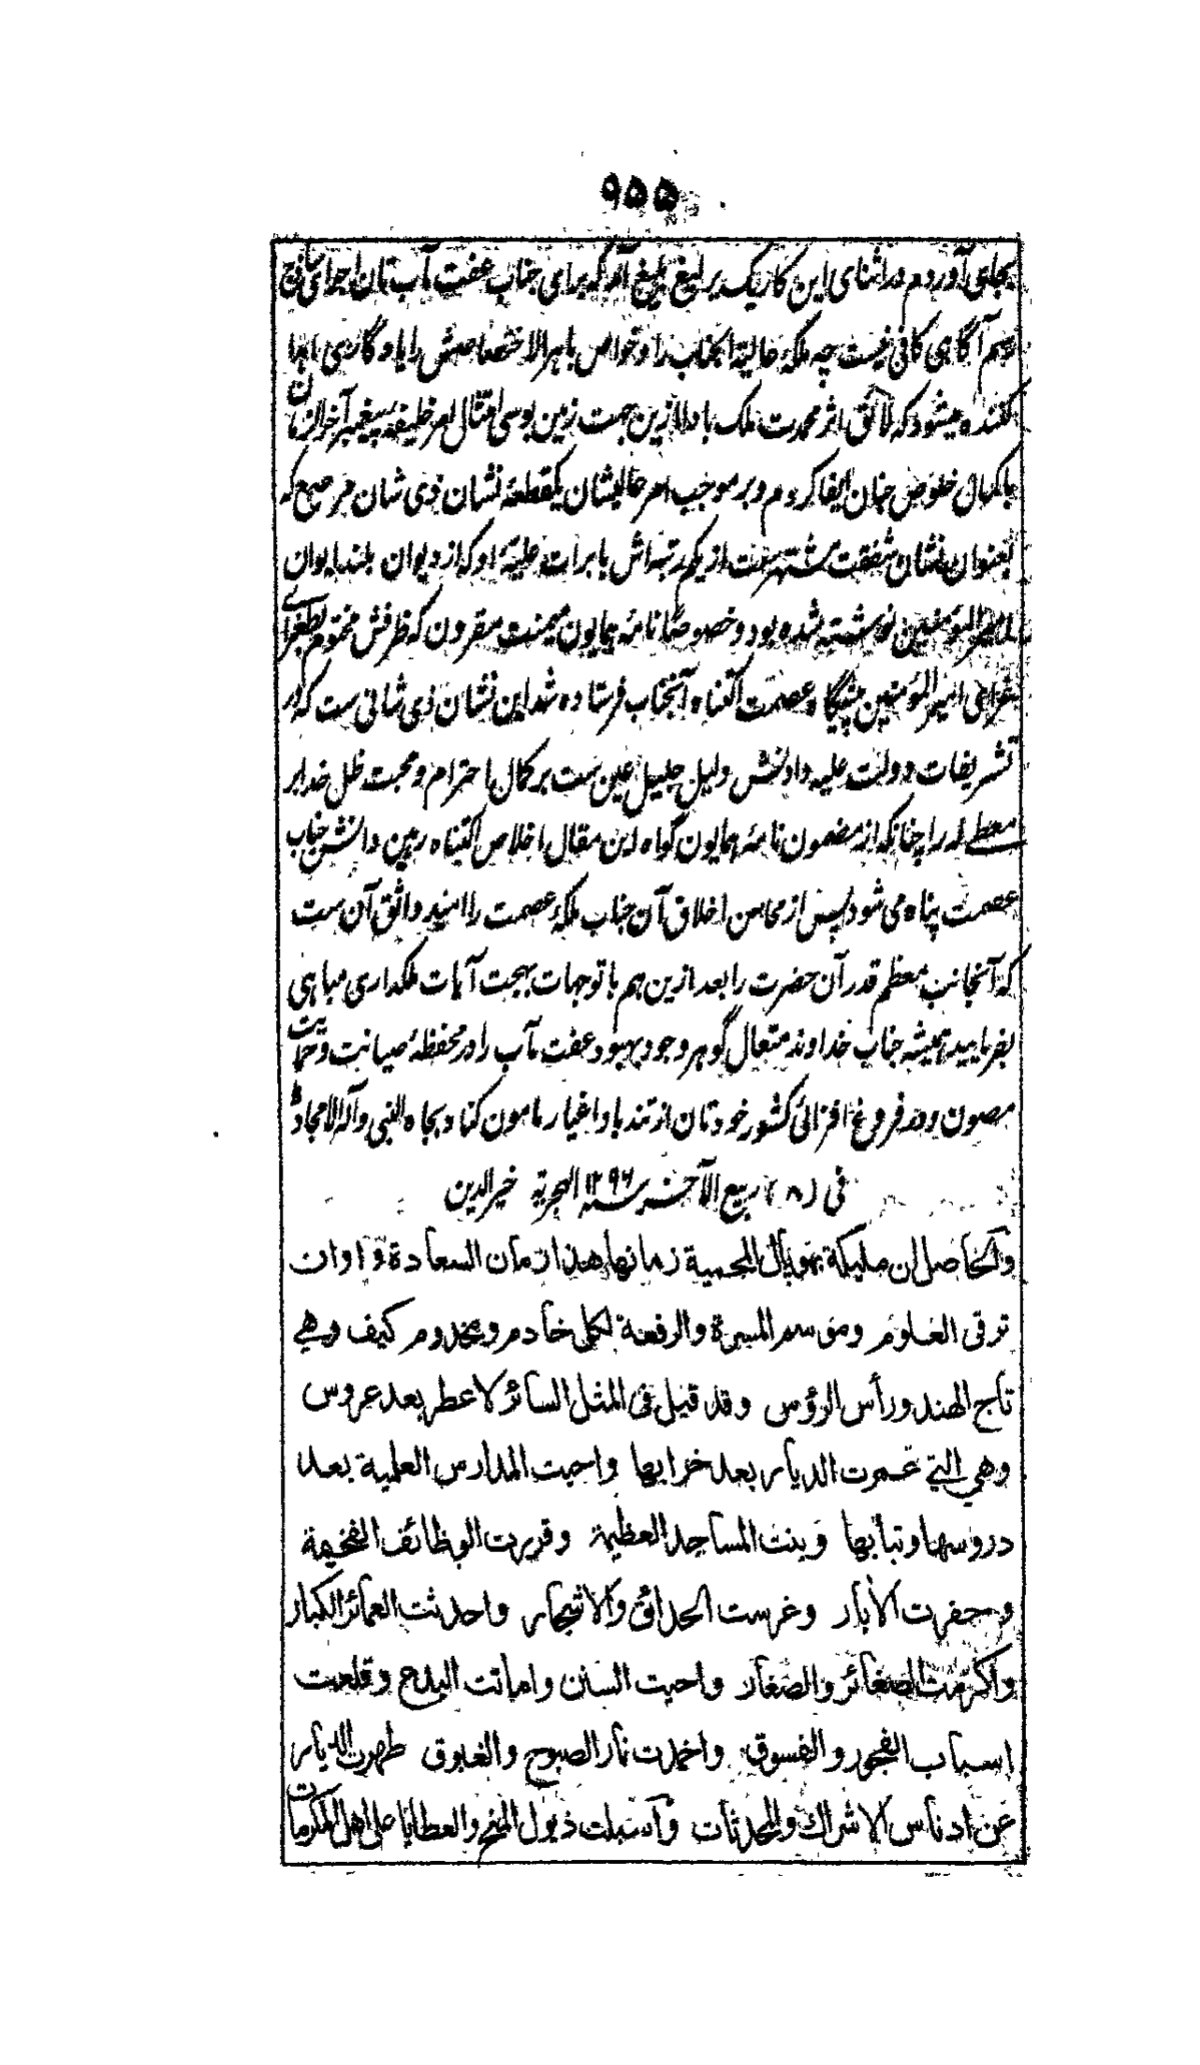 ٩٥٥
بجای آوردم در اثنای این کار یک برلیغ بلیغ آنکه برای جناب عفت مآب تان اجرای
هم آگاهی کافی نیست چه ملکه عالیة الجناب را و خواص باهر الاختصاصش را یادگاری
کننده میشود که لائق اثر محمدت ملک باد لازین جهت زمین بوسی امتثال امر خلیفه پیغمبر آخر الزمان
با کمال خلوص جنان ایفا کردم و بر موجب امر عالیشان یکقطعه نشان ذی شان مرصع که
بعنوان نشان شفقت مشتهرست از یکم رتبه اش با برات علیهٔ او که از دیوان بلند ایوان
امیر المؤمنین نوشته شده بود و خصوصا نامهٔ همایون میمنت مقرون که ظرفش مختوم بطغرای
غرای امیر المؤمنین پیشگاه عصمت اکتناه آنجناب فرستاده شد این نشان ذی شانی ست که در
تشریفات دولت علیه دادنش دلیل جلیل عین ست بر کمال احترام و محبت ظل خدا بر
معطی له را چنانکه از مضمون نامهٔ همایون گواه این مقال اخلاص اکتناه رهین دانش جناب
عصمت پناه می شود پس از محاسن اخلاق آن جناب ملکهٔ عصمت را امید واثق آن ست
که آنجانب معظم قدر آن حضرت را بعد ازین هم با توجهات بهجت آیات ملکداری مباهی
بفرمایید همیشه جناب خداوند متعال گوهر وجود بهبود عفت مآب را در محفظهٔ صیانت و حمایت
مصون و در فروغ افزائی کشور خودتان از تند باد اغیار مامون کناد بجاه النبی و آله الامجاد
فی (٨) ربیع الآخر سنه ١٢٩٦ الهجریة خیر الدین
والحاصل ان ملیکة بهوپال المحمیة زمانها هذا زمان السعادة واوان
ترقی العلوم وموسم المسرة والرفعة لکل خادم ومخدوم کیف وهی
تاج الهند ورأس الرؤس وقد قیل فی المثل السائر لا عطر بعد عروس
وهی التی عمرت الدیار بعد خرابها واحیت المدارس العلمیة بعد
دروسها وتبابها وبنت المساجد العظیمة وقررت الوظائف الفخیمة
وحفرت الآبار وغرست الحدائق والاشجار واحدثت العمائر الکبار
واکرمت الصغائر والصغار واحیت السنن واماتت البدع وقلعت
اسباب الفجور والفسوق واخمدت نار الصبوح والغبوق طهرت الدیار
عن ادناس الاشراک والمحدثات واسبلت ذیول المنح والعطایا علی اهل المکرمات